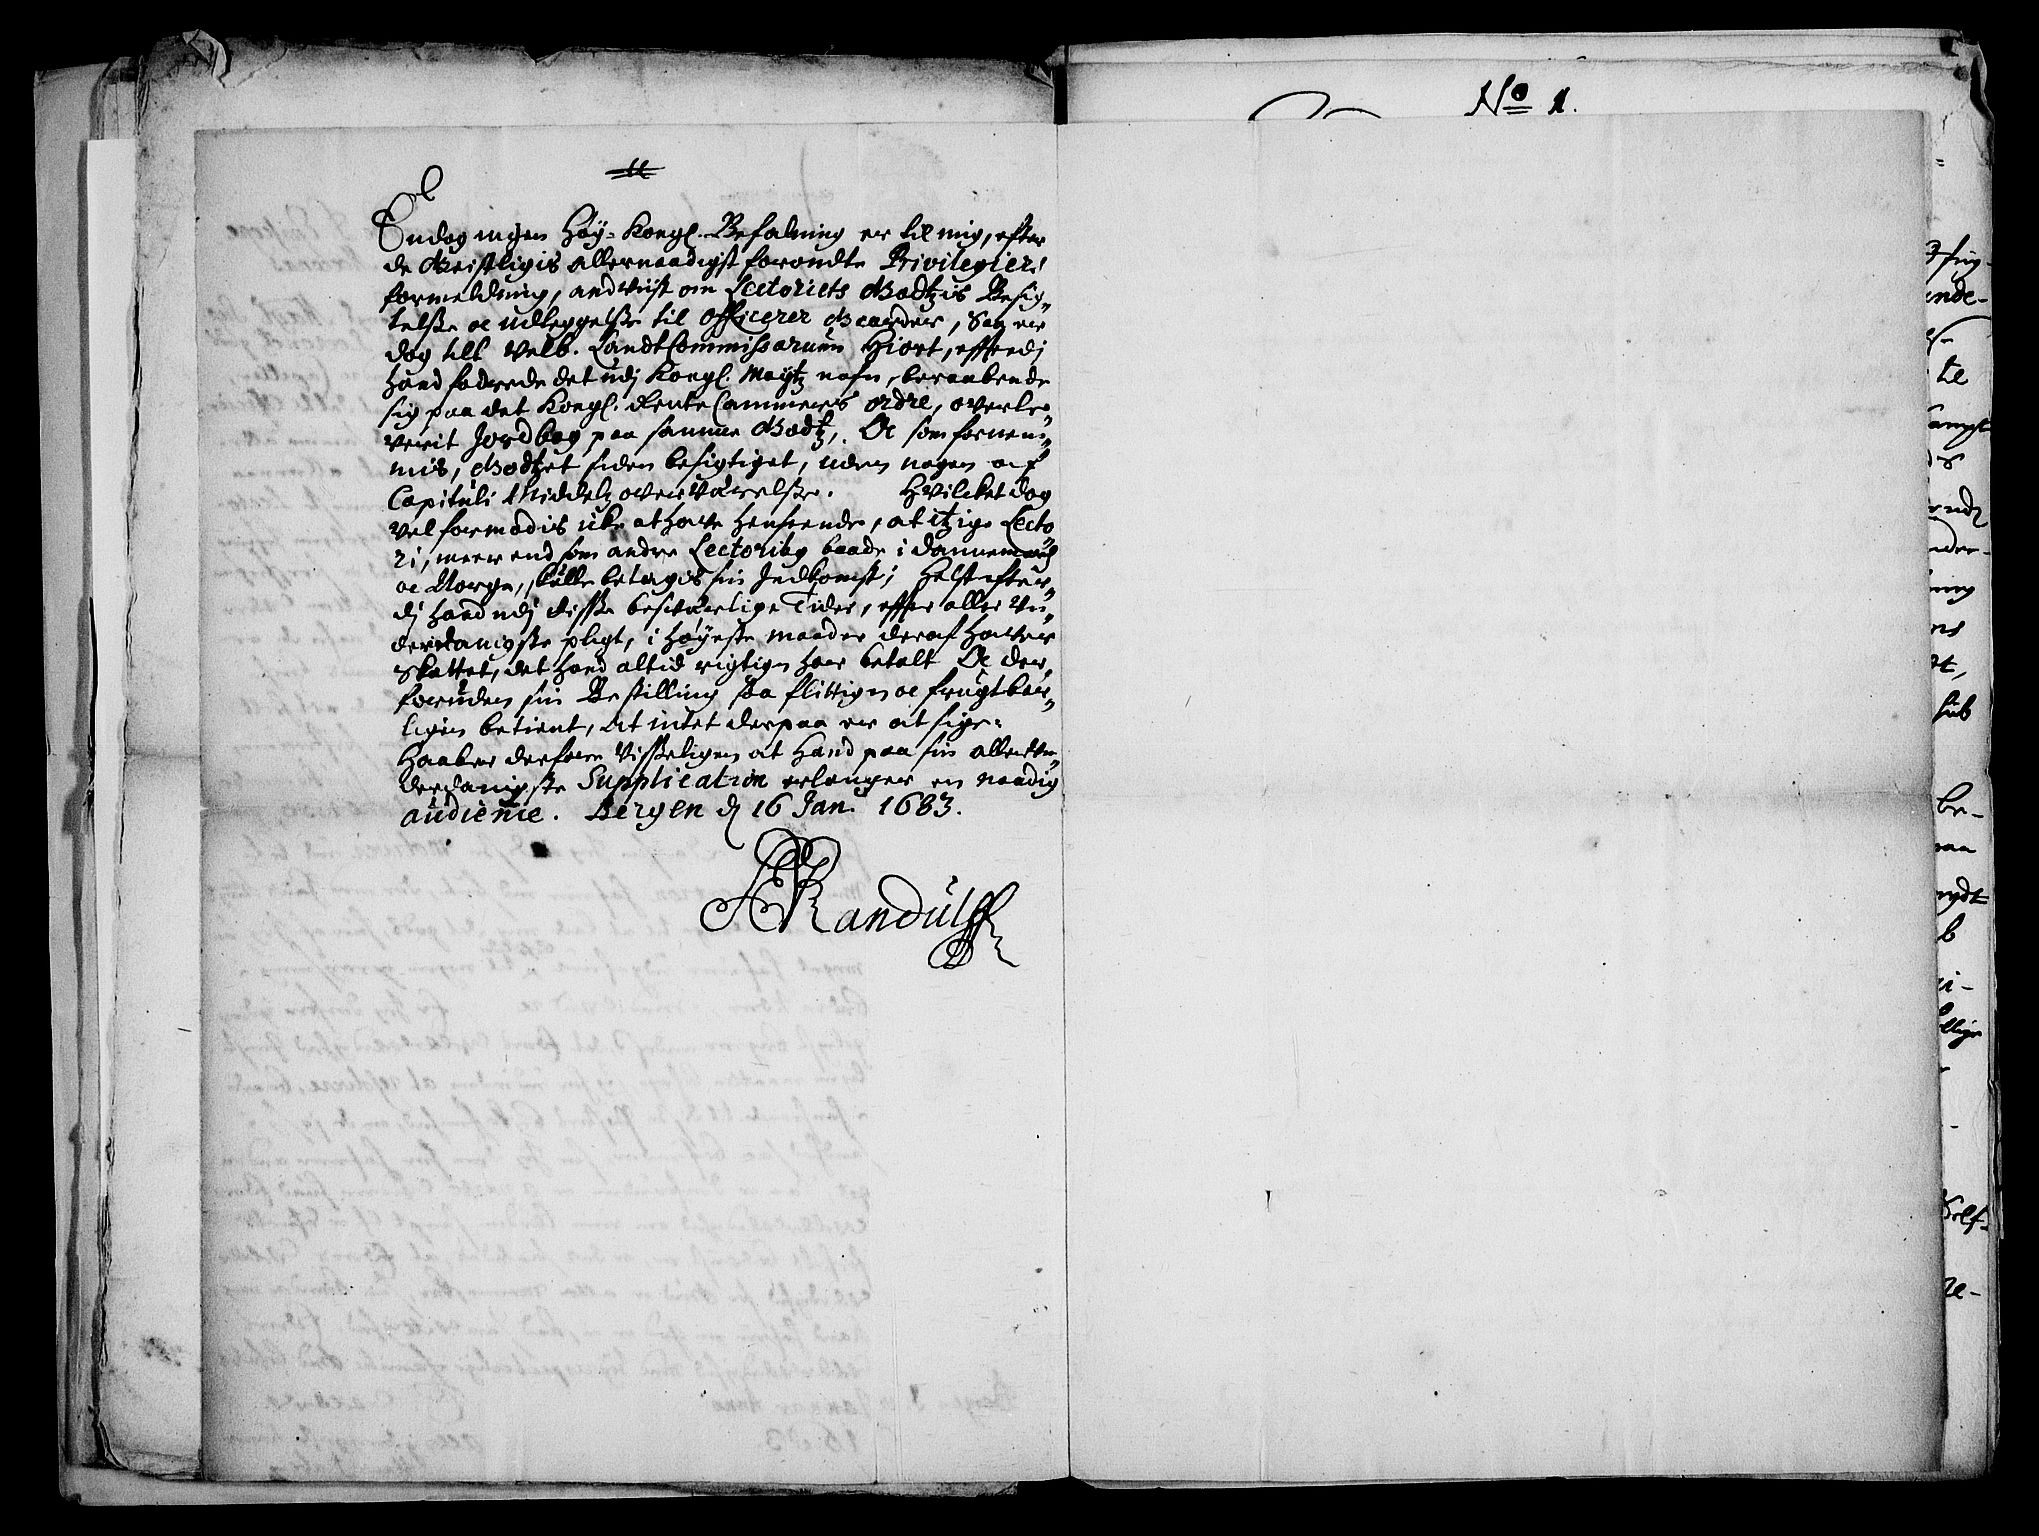 Endog ingen Høy-Kongl. Befalning er til mig, efter
de Geistligis allernaadigst forondte Privilegiers
formelding, andviist om Lectoriets Godtzis Besig,,
telße oc udleggelße til Officerer Gaarder, Saa er
dog till Velb. LandtCommissarium Hiort, effterdj
hand fodrede det udj Kongl. Maytz nafn, beraabende
sig paa det Kongl. RenteCammers ordre, overle,,
verit Jordbog paa samme Godtz, Oc som fornem,,
mis, Godtzet siden besigtiget, uden nogen af
Capituli Middels overværelße. Hvilcket dog
vel formodis icke at have henseende, at itzige Lecto
ri, meer end som andre Lectoribus baade i Dannemarck
oc Norge, skulle betagis sin Indkomst; Helst efter,,
dj hand udj disse besværlige Tider, effter aller un,,
derdanigste pligt, i høyeste maader deraf hafver
Skattet, det hand altid rigtigen har betalt Oc der,,
foruden sin Bestilling saa flittigen oc frugtbar,,
ligen betient, at intet derpaa er at sige.
Haaber derfore visseligen at hand paa sin allerun,,
derdanigste Supplication erlanger en naadig
audience. Bergen d 16 Jan. 1683.
Randulff
No 1.
til
be-
paa